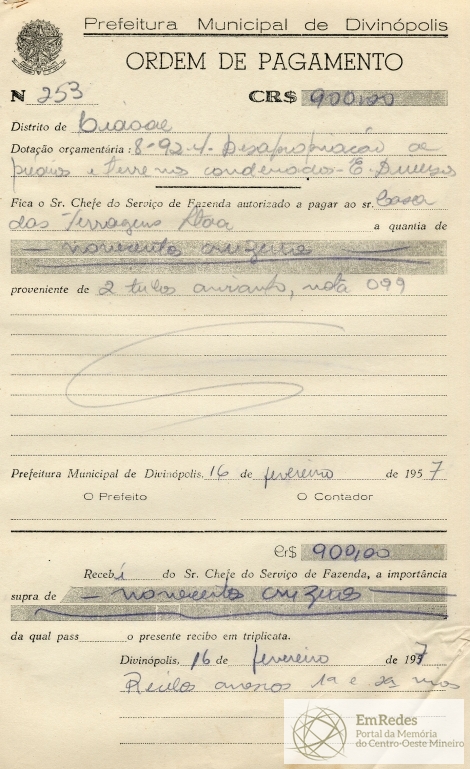 Prefeitura Municipal de Divinópolis
ORDEM DE PAGAMENTO
N 253 CR$ 900,00
Distrito de
Dotação orçamentária: 8-92.4- Desapropriação de
prédios e terrenos condenados - E. Diversos
Fica o Sr. Chefe do Serviço de Fazenda autorizado a pagar ao sr. Casa
das Ferragens a quantia de
— novecentos cruzeiros —
proveniente de 2 tubos amianto, nota 099
Prefeitura Municipal de Divinópolis, 16 de fevereiro de 1957
O Prefeito O Contador
Cr$ 900,00
Recebi do Sr. Chefe do Serviço de Fazenda, a importância
supra de — novecentos cruzeiros —
da qual pass o presente recibo em triplicata.
Divinópolis, 16 de fevereiro de 1957
Recibos anexos 1a e 2a vias
EmRedes
Portal da Memória
do Centro-Oeste Mineiro